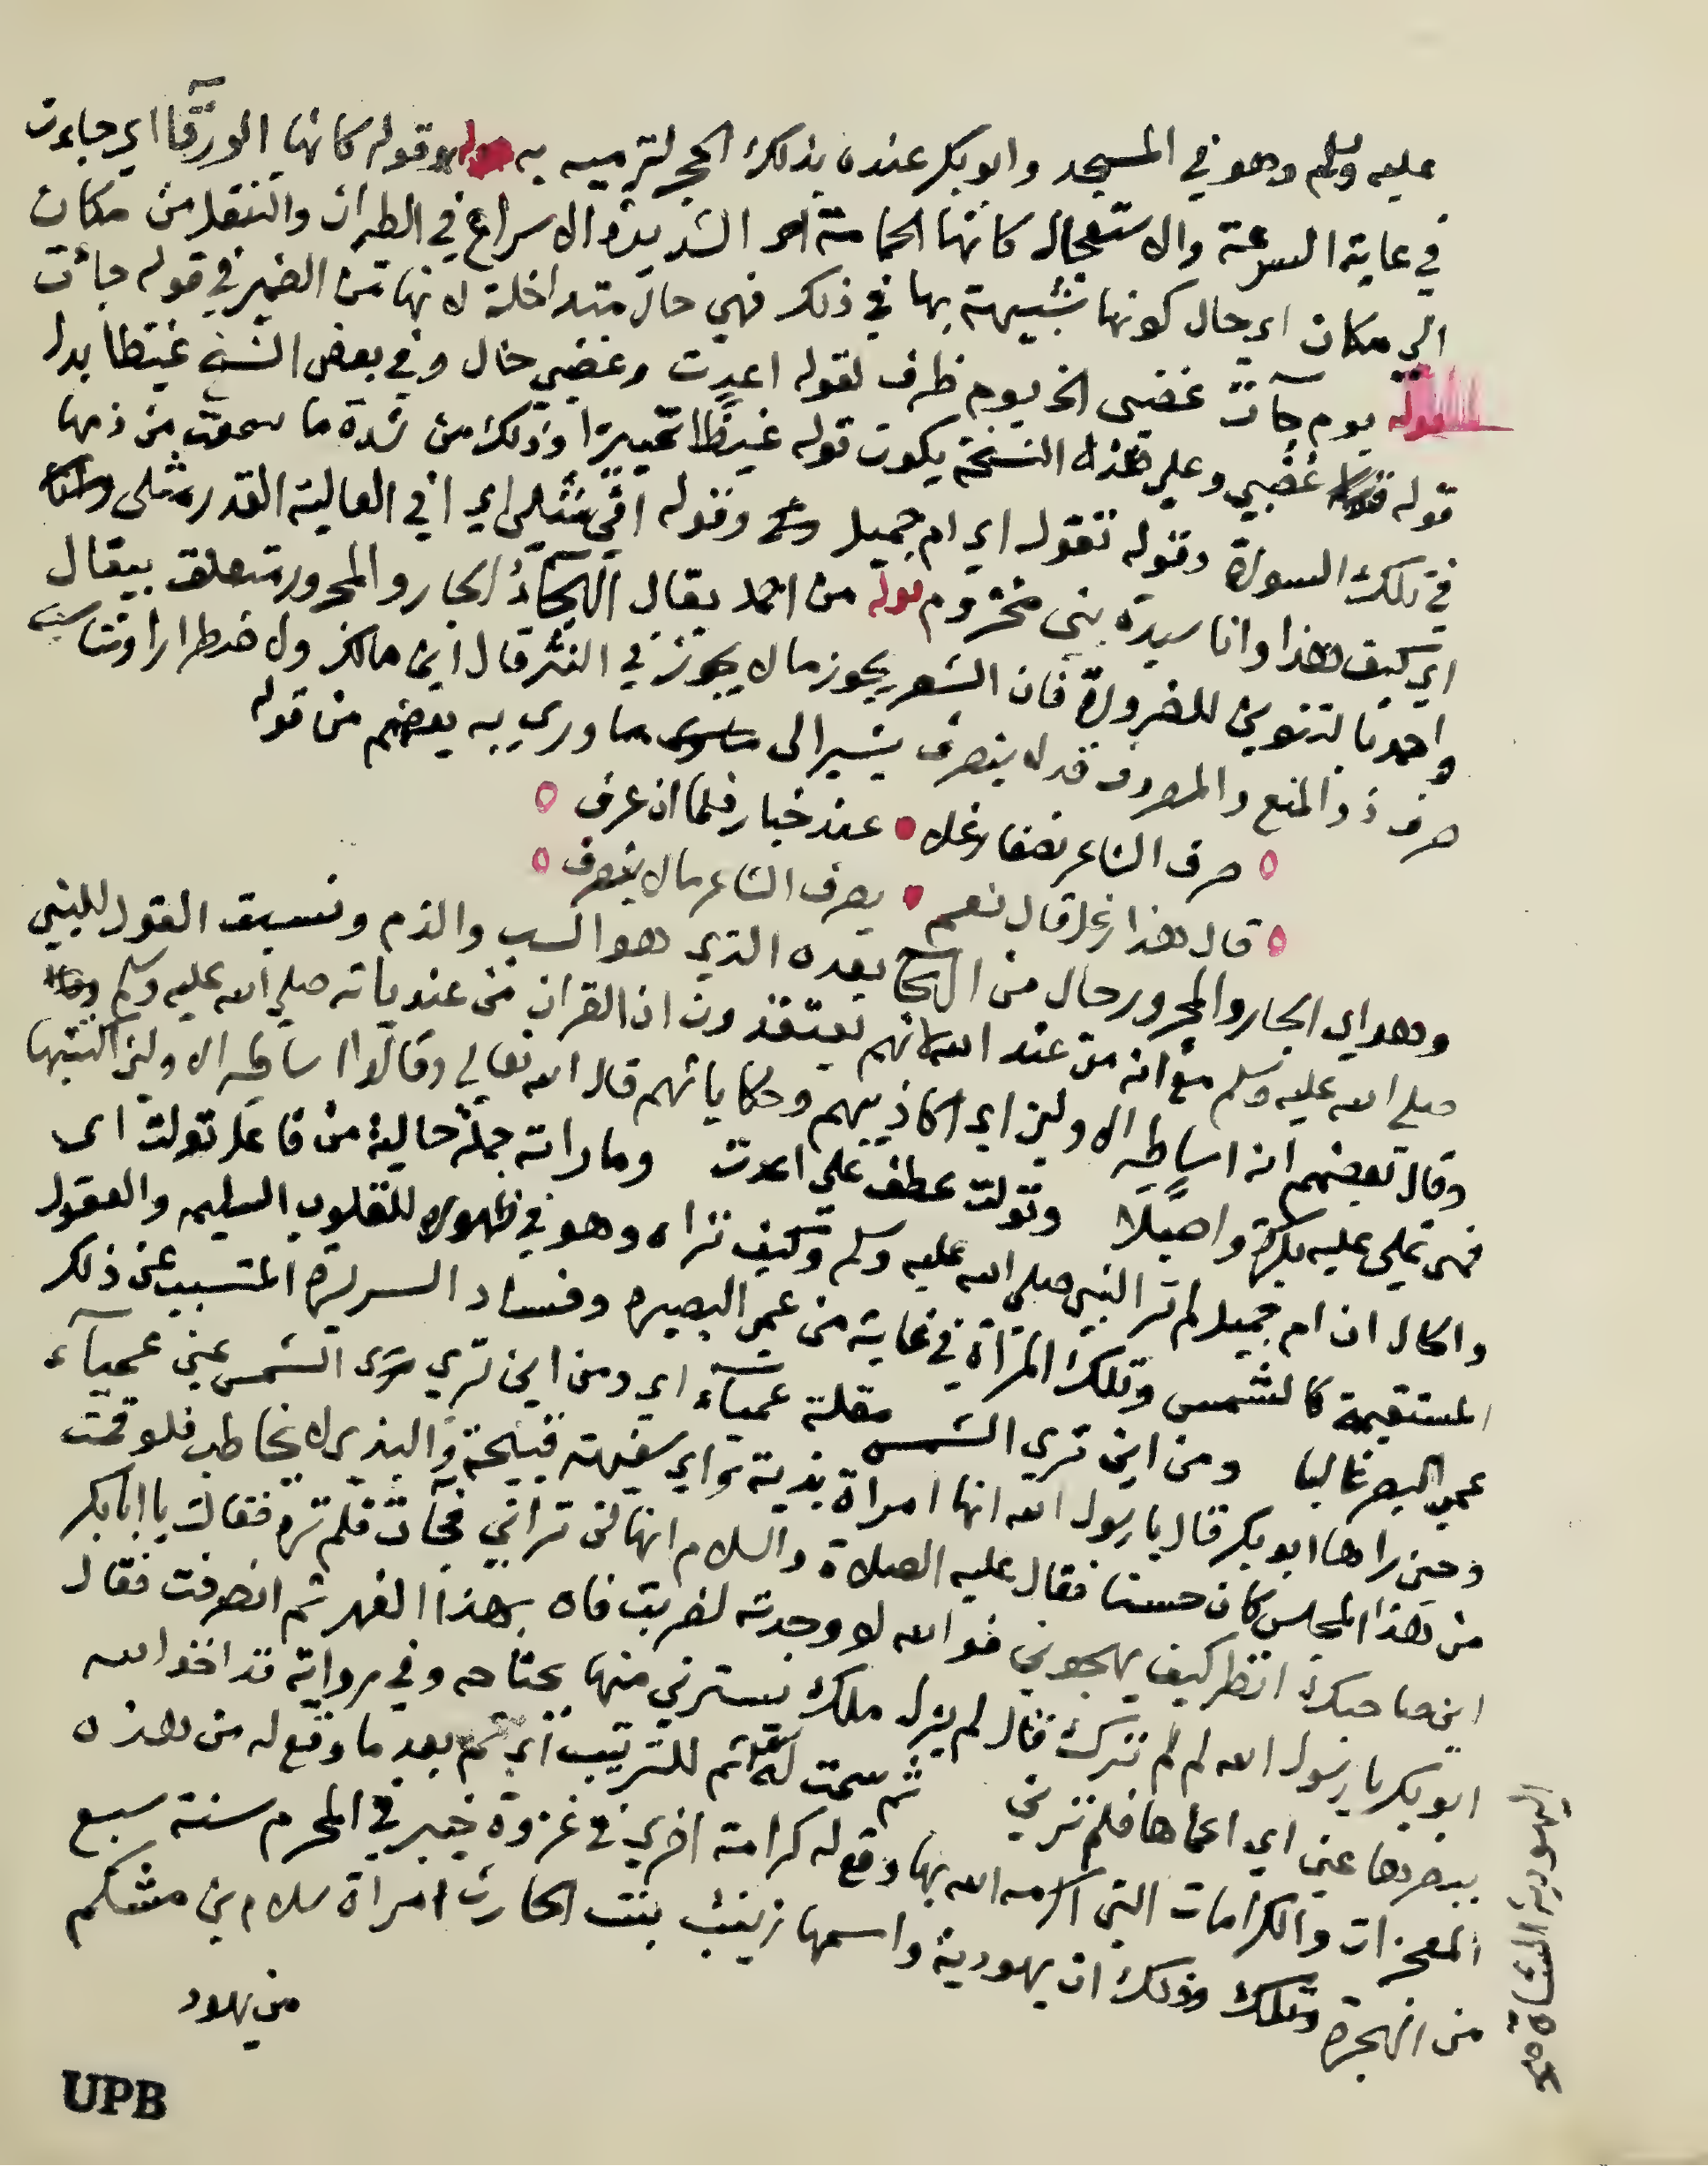 عليه وسلم وهو في المسجد وابو بكر عنده بذلك الحجر لترميه به وقوله كانها الورقا اي جاءت
في غاية السرعة والاستعجال كانها الحمامة الشديدة الاسراع في الطيران والتنقل من مكان
الي مكان اي حال كونها شبيهة بها في ذلك فهي حال متداخلة لانها من الضمير في قوله جأت
قوله يوم جآت غضبى الخ يوم ظرف لقوله اعدت وغضبي حال وفي بعض النسخ غيظا بدل
قوله غضبي وعلي هذه النسخة يكون قوله غيظا تمييزا وذلك من شدة ما سمعت من ذمها
في تلك السورة وقوله تقول اي ام جميل وقوله افي مثلي اي افي العالية القدر مثلى
اي كيف هذا وانا سيدة بني مخزوم قوله من احمد يقال الهجآء الجار والمجرور متعلق بيقال
واحمد بالتنوين للضرورة فان الشعر يجوز ما لا يجوز في النثر قال ابن مالك ولاضطرار او تناسب
صرف ذو المنع والمصروف قد لا ينصرف يشير الى ما وري به بعضهم من قوله
صرف الشاعر نصفا زغلا عند خبار فلما ان عرف
قال هذا زغل قال نعم يصرف الشاعر ما لا ينصرف
وهو اي الجار والمجرور حال من الهجا بعده الذي هو السب والذم ونسبت القول للنبي
صلي الله عليه وسلم مع انه من عند الله لانهم يعتقدون ان القران من عند ياته صلي الله عليه وسلم
وقال بعضهم انه اساطير الاولين اي اكاذيبهم وحكاياتهم قال الله تعالي وقالوا اساطير الاولين اكتتبها
فهى تملى عليه بكرة واصيلا وتولت عطف على اعدت وما راته جملة حالية من فاعل تولت اى
والحال ان ام جميل لم تر النبي صلي الله عليه وسلم وكيف تراه وهو في ظهوره للقلوب السليمه والعقول
المستقيمة كالشمس وتلك المرأة في غاية من عمي البصيره وفساد السريرة المتسبب عن ذلك
عمي البصر غالبا ومن اين تري الشمس مقلة عميآء اي ومن اين تري الشمس عين عميآء
وحين راها ابو بكر قال يا رسول الله انها امراة بذية اي سفيهة قبيحة والبذي لا يخاطب فلو قمت
من هذا المجلس كان حسنا فقال عليه الصلاة والسلام انها لن تراني فجآت فلم تره فقالت يا ابا بكر
اين صاحبك انظر كيف يهجوني فوالله لو وجدته لضربت فاه بهذا الفهر ثم انصرفت فقال
ابو بكر يا رسول الله لم لم ترك قال لم يزل ملك يسترني منها بجناحه وفي رواية قد اخذ الله
ببصرها عني اي اعماها فلم ترني ثم سمت له ثم للترتيب اي ثم بعد ما وقع له من هذه
المعجزات والكرامات التي اكرمه الله بها وقع له كرامة اخري في غزوة خيبر في المحرم سنة سبع
من الهجرة وتلك وذلك ان يهودية واسمها زينب بنت الحارث امراة سلام بن مشكم
من يهود
اليهودية الشاة
UPB